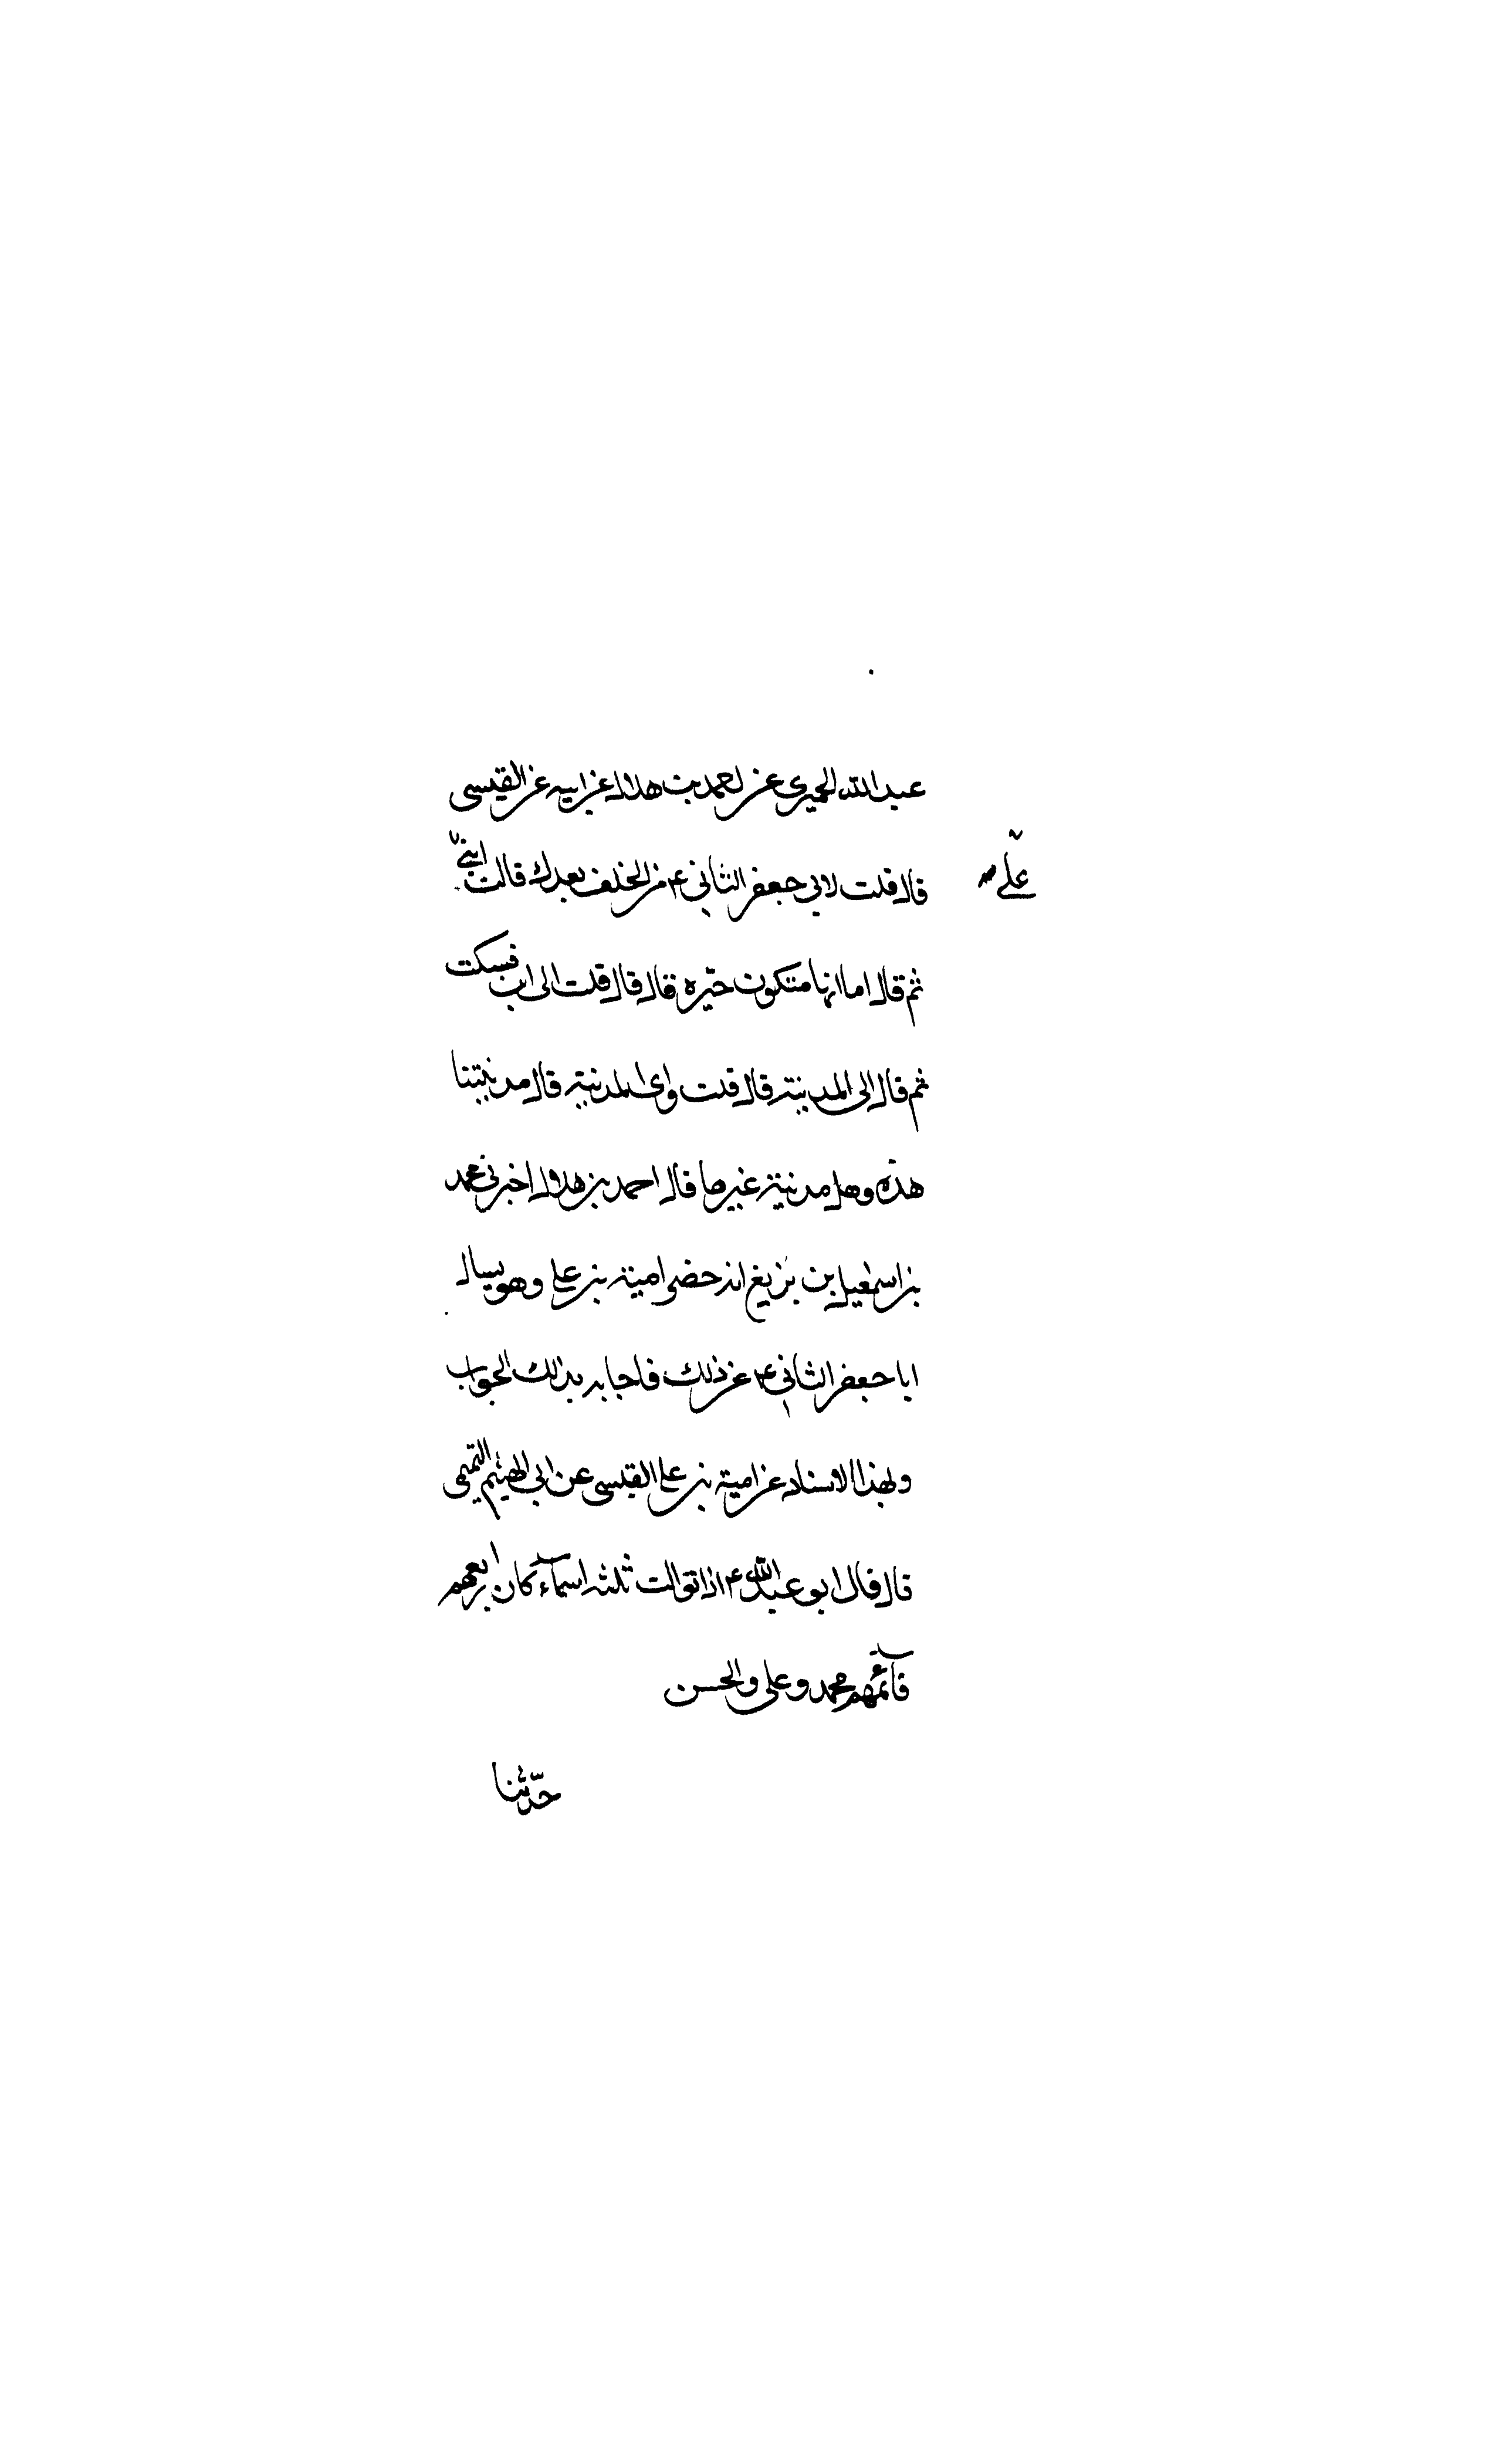 عبد الله الحميري عن احمد بن هلال عن ابيه عن القيسى
قال قلت لابي جعفر الثاني ع من الخلف بعدك قالت ابني
علي
ثم قال اما انها ستكون حيره قال قال قلت الى اين فسكت
ثم قال الى المدينة قال قلت واى المدينة قال مدينتنا
هذه وهل مدينة غيرها قال احمد بن هلال اخبرني محمد
بن اسمعيل بن بزيع انه حضر امية بن علي وهو يسال
ابا جعفر الثاني ع عن ذلك فاجابه بذلك الجواب
وبهذا الاسناد عن امية بن علي القيسي عن ابي الهيثم التميمى
قال قال ابو عبد الله ع اذا توالت ثلثه اسمآء كان رابعهم
قآئمهم محمد وعلي والحسن
حدّثنا